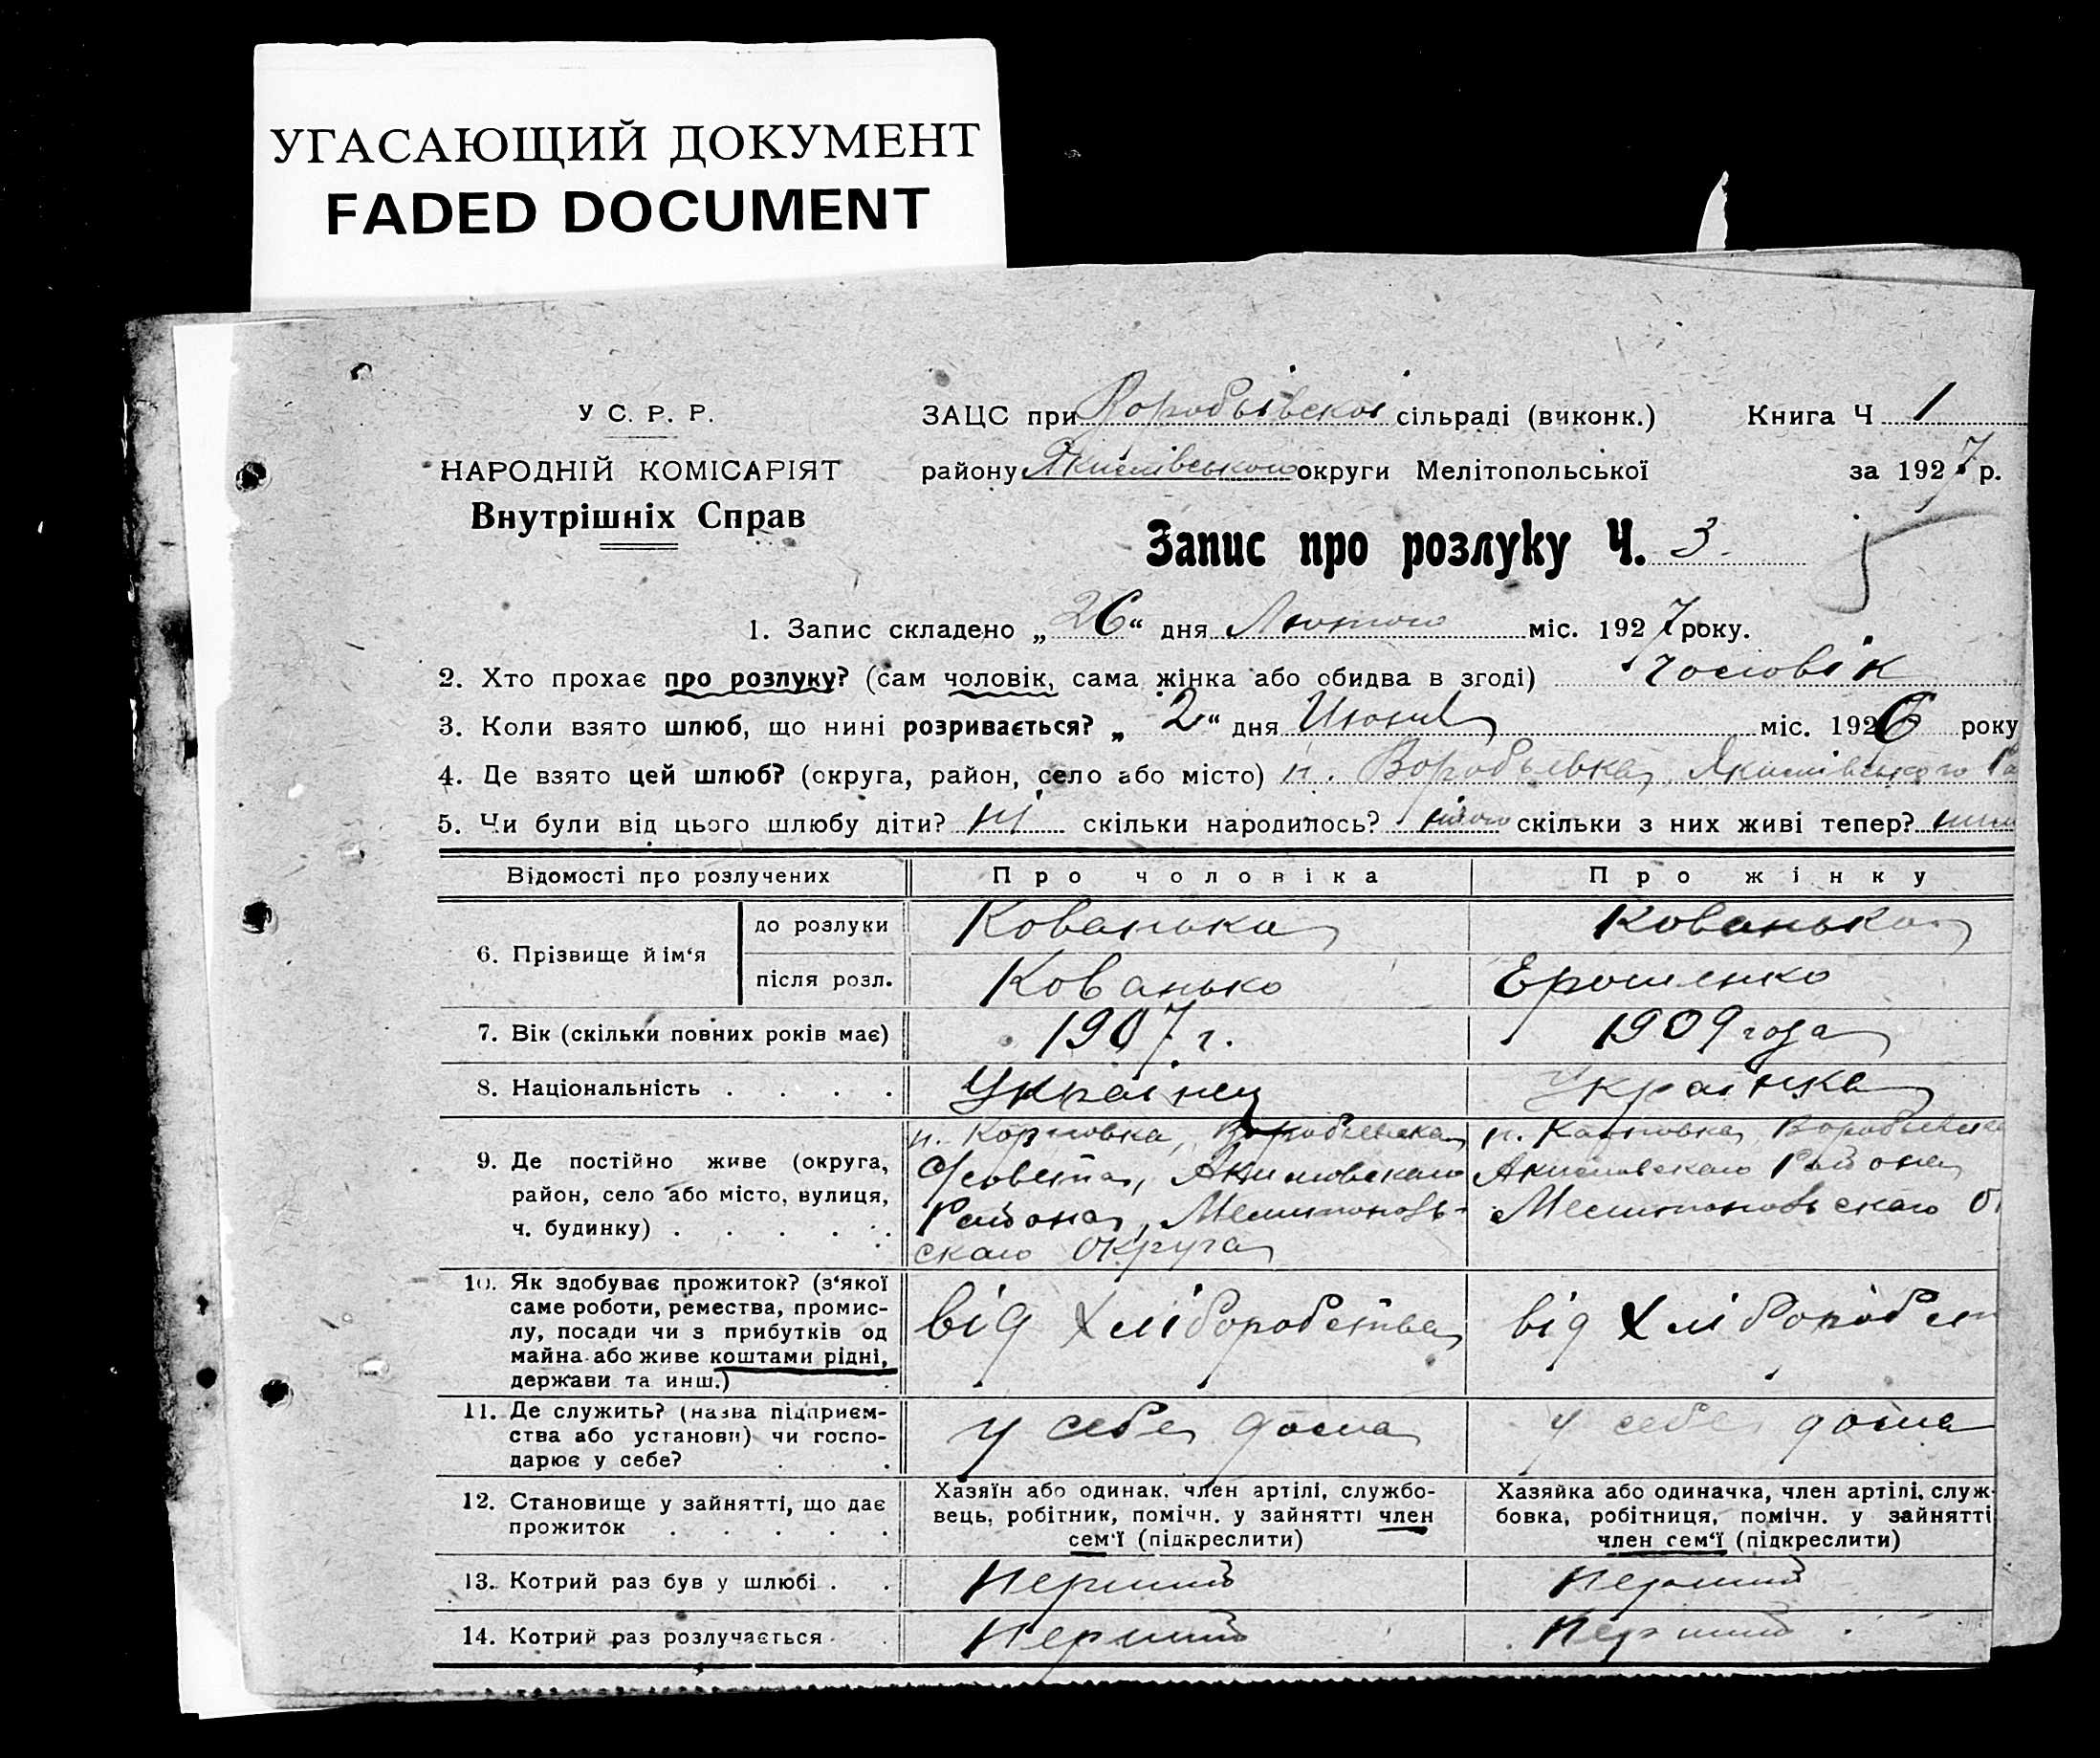 УГАСАЮЩИЙ ДОКУМЕНТ
FADED DOCUMENT
У С. Р. Р.
НАРОДНІЙ КОМІСАРІЯТ
Внутрішніх Справ
ЗАЦС при Воробьівскої сільраді (виконк.) Книга Ч 1
району Якимівського округи Мелітопольської за 1927 р.
Запис про розлуку Ч. 3.
5
1. Запис складено „26“ дня Лютого міс. 1927 року.
2. Хто прохає про розлуку? (сам чоловік, сама жінка або обидва в згоді) чоловік
3. Коли взято шлюб, що нині розривається? „2“ дня Июня міс. 1926 року
4. Де взято цей шлюб? (округа, район, село або місто) п. Воробьевка, Якимівського Ра
5. Чи були від цього шлюбу діти? ні скільки народилось? скільки з них живі тепер?
Відомості про розлучених Про чоловіка Про жінку
6. Прізвище й ім‘я до розлуки Кованька Кованька
після розл. Кованько Ерошенко
7. Вік (скільки повних років має) 1907 г. 1909 года
8. Національність . . . . Українец Українка
9. Де постійно живе (округа, район, село або місто, вулиця, ч. будинку) . . . . .
п. Воробьевска
Ссовета, Акимовскаго
Района, Мелитополь-
скаго Округа
п. Воробьевск
Акимовскаго Района
Мелитопольскаго О
10. Як здобуває прожиток? (з‘якої саме роботи, ремества, промис-
лу, посади чи з прибутків од
майна або живе коштами рідні,
держави та инш.)
від Хліборобства від Хліборобст
11. Де служить? (назва підприєм-
ства або установи) чи госпо-
дарює у себе?
у себе дома у себе дома
12. Становище у зайнятті, що дає
прожиток . . . . .
Хазяїн або одинак. член артілі, службо-
вець, робітник, помічн. у зайнятті член
сем‘ї (підкреслити)
Хазяйка або одиначка, член артілі, служ-
бовка, робітниця, помічн. у зайнятті
член сем‘ї (підкреслити)
13. Котрий раз був у шлюбі . . Перший Перший
14. Котрий раз розлучається . Перший Перший